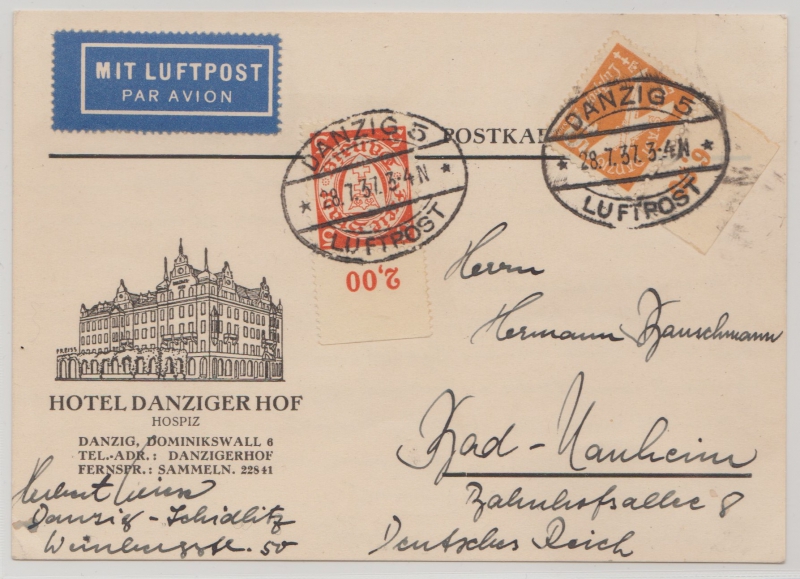 MIT LUFTPOST
PAR AVION
POSTKA
DANZIG 5
28.7.37. 3-4 N
LUFTPOST
2,00
DANZIG 5
28.7.37. 3-4 N
LUFTPOST
HOTEL DANZIGER HOF
HOSPIZ
DANZIG, DOMINIKSWALL 6
TEL.-ADR.: DANZIGERHOF
FERNSPR.: SAMMELN. 22841
Herbert
Danzig-Schidlitz
Weinbergstr. 50
Herrn
Hermann Bauschmann
Bad-Nauheim
Bahnhofsallee 8
Deutsches Reich